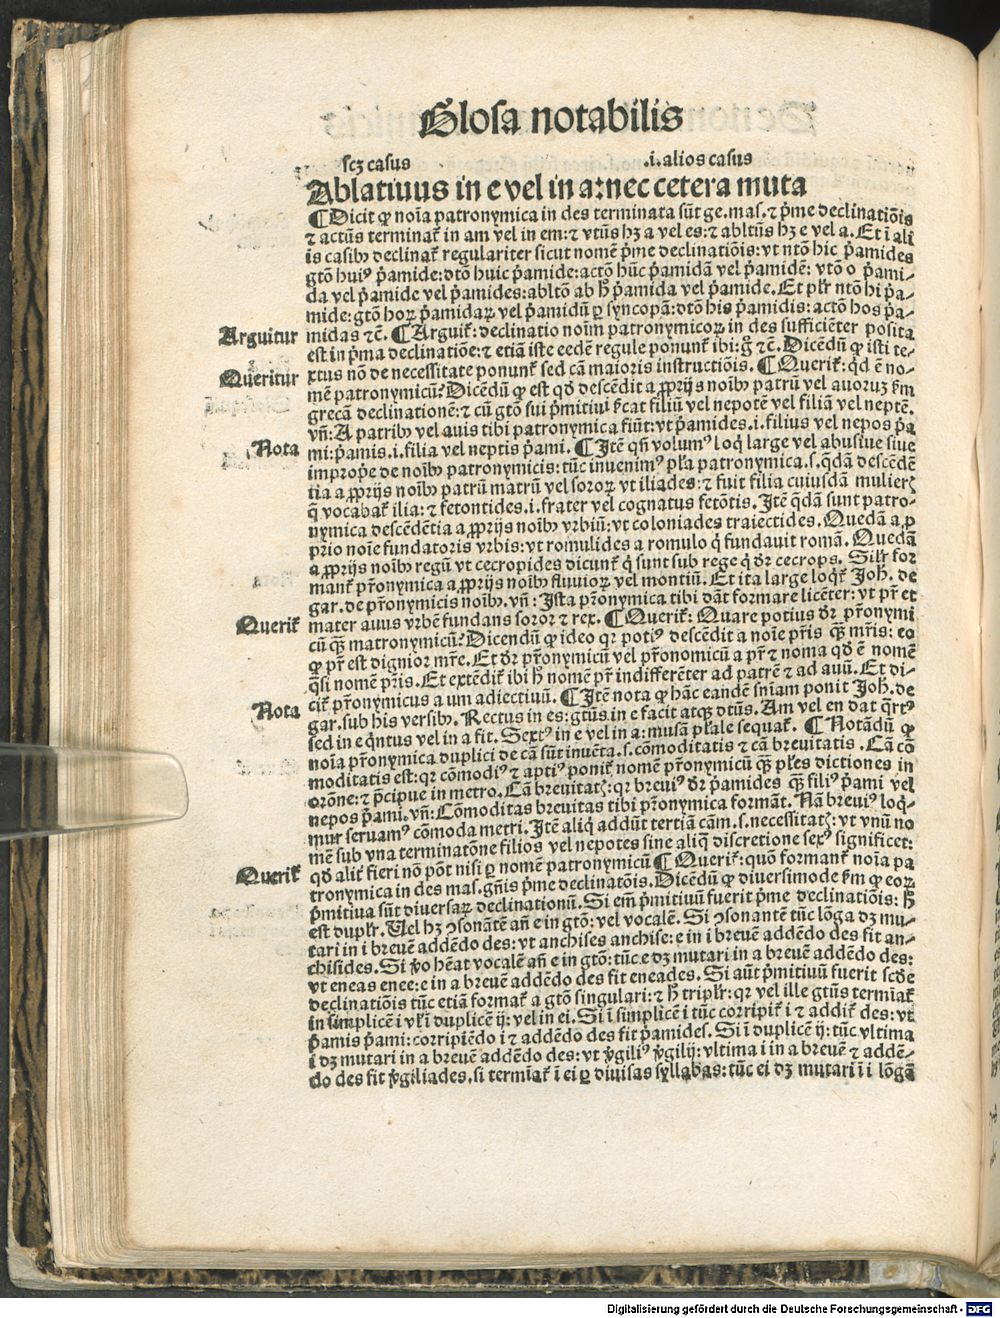 Glosa notabilis
scꝫ casus .i. alios casus
Ablatiuus in e vel in a: nec cetera muta
¶ Dicit ꝙ noīa patronymica in des terminata sūt ge. mas. ⁊ p̄me declinatiōis
⁊ actūs terminat̄ in am vel in em: ⁊ vtūs hꝫ a vel es: ⁊ abltūs hꝫ e vel a. Et ī ali
is casibꝫ declinat̄ regulariter sicut nomē p̄me declinatiōis: vt ntō hic p̄amides
gtō huiꝰ p̄amide: dtō huic p̄amide: actō hūc p̄amidā vel p̄amidē: vtō o p̄ami-
da vel p̄amide vel p̄amides: abltō ab h̄ p̄amida vel p̄amide. Et plr̄ ntō hi p̄a-
mide: gtō hoꝝ p̄amidaꝝ vel p̄amidū ꝑ syncopā: dtō his p̄amidis: actō hos p̄a-
Arguitur midas ⁊c̄. ¶ Arguit̄: declinatio noīm patronymicoꝝ in des sufficiēter posita
est in p̄ma declinatiōe: ⁊ etiā iste eedē regule ponunt̄ ibi: g̊ ⁊c̄. Dicēdū ꝙ isti te-
Queritur xtus nō de necessitate ponunt̄ sed cā maioris instructiōis. ¶ Querit̄: qd̄ ē no-
mē patronymicū? Dicēdū ꝙ est qd̄ descēdit a ꝓprijs noībꝫ patrū vel auoruꝫ s̄m
grecā declinationē: ⁊ cū gtō sui p̄mitiui s̄cat filiū vel nepotē vel filiā vel neptē.
vn̄: A patribꝫ vel auis tibi patronymica fiūt: vt p̄amides .i. filius vel nepos p̄a
Nota mi: p̄amis .i. filia vel neptis p̄ami. ¶ Itē qn̄ volumꝰ loq̄ large vel abusiue siue
improp̄e de noībꝫ patronymicis: tūc inuenimꝰ pl̄a patronymica .s. q̄dā descēdē
tia a ꝓprijs noībꝫ patrū matrū vel soroꝝ vt iliades: ⁊ fuit filia cuiusdā mulierꝭ
q̄ vocabat̄ ilia: ⁊ fetontides .i. frater vel cognatus fetōtis. Itē q̄dā sunt patro-
nymica descēdētia a ꝓprijs noībꝫ vrbiū: vt coloniades traiectides. Quedā a ꝓ
prio noīe fundatoris vrbis: vt romulides a romulo q̄ fundauit romā. Quedā
a ꝓprijs noībꝫ regū vt cecropides dicunt̄ q̄ sunt sub rege q̄ dr̄ cecrops. Silr̄ for
mant̄ pr̄onymica a ꝓprijs noībꝫ fluuioꝝ vel montiū. Et ita large loq̄t̄ Joh. de
gar. de pr̄onymicis noībꝫ. vn̄: Ista pr̄onymica tibi dāt formare licēter: vt pr̄ et
Querit̄ mater auus vrbē fundans soror ⁊ rex. ¶ Querit̄: Quare potius dr̄ pr̄onymi
cū ꝗ̄ꝫ matronymicū? Dicendū ꝙ ideo qr potiꝰ descēdit a noīe pr̄is ꝗ̄ꝫ mr̄is: eo
ꝙ pr̄ est dignior mr̄e. Et dr̄ pr̄onymicū vel pr̄onomicū a pr̄ ⁊ noma qd̄ ē nomē
q̄si nomē pr̄is. Et extēdit̄ ibi h̄ nomē pr̄ indifferēter ad patrē ⁊ ad auū. Et di-
Nota cit̄ pr̄onymicus a um adiectiuū. ¶ Itē nota ꝙ hāc eandē sniam ponit Joh. de
gar. sub his versibꝫ. Rectus in es: gtūs in e facit atqꝫ dtūs. Am vel en dat q̄rtꝰ
sed in e q̄ntus vel in a fit. Sextꝰ in e vel in a: musā pl̄ale sequat̄. ¶ Notādū ꝙ
noīa pr̄onymica duplici de cā sūt inuēta .s. cōmoditatis ⁊ cā breuitatis. Cā cō
moditatis est: qr cōmodiꝰ ⁊ aptiꝰ ponit̄ nomē pr̄onymicū ꝗ̄ꝫ pl̄es dictiones in
orōne: ⁊ p̄cipue in metro. Cā breuitatꝭ: qr breuiꝰ dr̄ p̄amides ꝗ̄ꝫ filiꝰ p̄ami vel
nepos p̄ami. vn̄: Cōmoditas breuitas tibi pr̄onymica formāt. Nā breuiꝰ loq̄-
mur seruamꝰ cōmoda metri. Itē aliq̄ addūt tertiā cām .s. necessitatꝭ: vt vnū no
mē sub vna terminatōne filios vel nepotes sine aliq̄ discretione sexꝰ significet:
Querit̄ qd̄ alit̄ fieri nō pōt nisi ꝑ nomē patronymicū ¶ Querit̄: quō formant̄ noīa pa
tronymica in des mas. gn̄is p̄me declinatōis. Dicēdū ꝙ diuersimode s̄m ꝙ eoꝝ
p̄mitiua sūt diuersaꝝ declinationū. Si em̄ p̄mitiuū fuerit p̄me declinatiōis: h̄
est duplr̄. Uel hꝫ ꝯsonātē an̄ e in gtō: vel vocalē. Si ꝯsonantē tūc lōga dꝫ mu-
tari in i breuē addēdo des: vt anchises anchise: e in i breuē addēdo des fit an-
chisides. Si v̄o hēat vocalē an̄ e in gtō: tūc e dꝫ mutari in a breuē addēdo des:
vt eneas enee: e in a breuē addēdo des fit eneades. Si aūt p̄mitiuū fuerit scd̄e
declinatiōis tūc etiā format̄ a gtō singulari: ⁊ h̄ triplr̄: qr vel ille gtūs termīat̄
in simplicē i vl̄ ī duplicē ij: vel in ei. Si ī simplicē i tūc corripit̄ i ⁊ addit̄ des: vt
p̄amis p̄ami: corripiēdo i ⁊ addēdo des fit p̄amides. Si ī duplicē ij: tūc vltima
i dꝫ mutari in a breuē addēdo des: vt v̄giliꝰ v̄gilij: vltima i in a breuē ⁊ addē-
do des fit v̄giliades. si termīat̄ ī ei ꝑ diuisas syllabas: tūc ei dꝫ mutari ī i lōgā
Digitalisierung gefördert durch die Deutsche Forschungsgemeinschaft - DFG